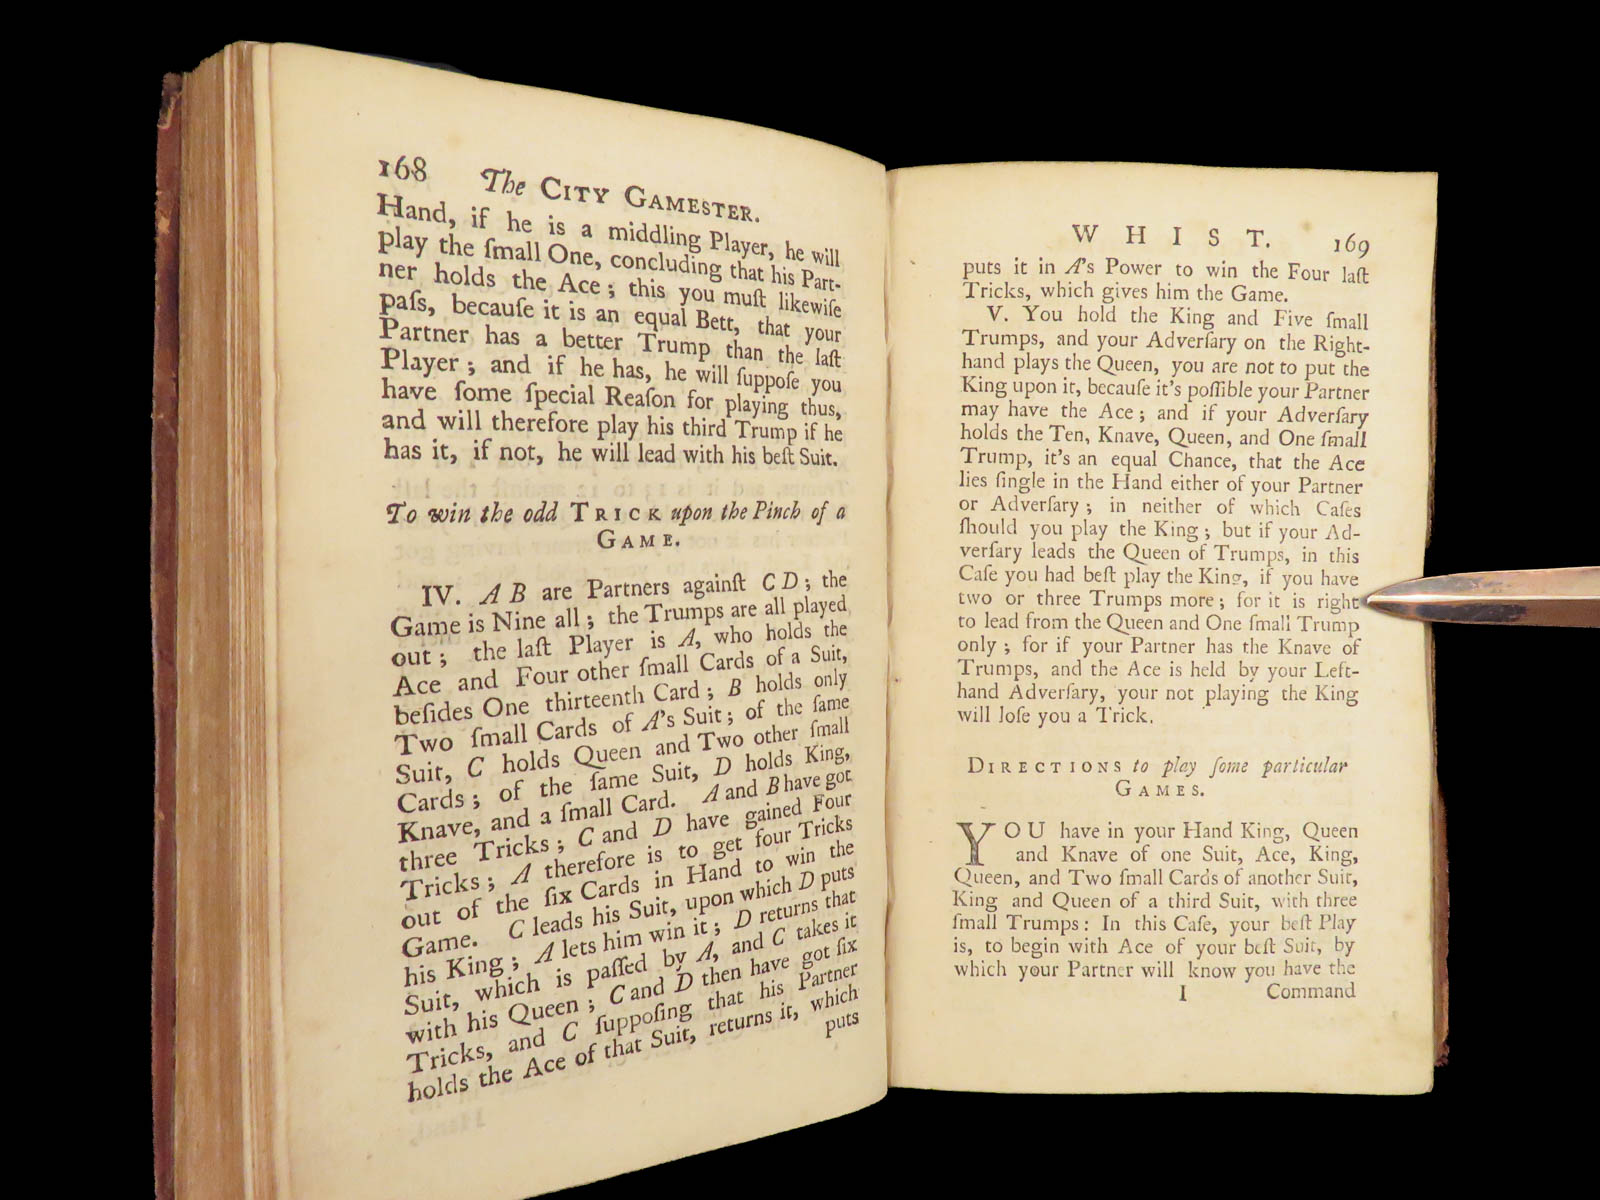 168 The CITY GAMESTER.
Hand, if he is a middling Player, he will
play the ſmall One, concluding that his Part-
ner holds the Ace ; this you muſt likewiſe
paſs, becauſe it is an equal Bett, that your
Partner has a better Trump than the laſt
Player ; and if he has, he will ſuppoſe you
have ſome ſpecial Reaſon for playing thus,
and will therefore play his third Trump if he
has it, if not, he will lead with his beſt Suit.
To win the odd TRICK upon the Pinch of a
GAME.
IV. A B are Partners againſt C D ; the
Game is Nine all ; the Trumps are all played
out ; the laſt Player is A, who holds the
Ace and Four other ſmall Cards of a Suit,
beſides One thirteenth Card ; B holds only
Two ſmall Cards of A's Suit ; of the ſame
Suit, C holds Queen and Two other ſmall
Cards ; of the ſame Suit, D holds King,
Knave, and a ſmall Card. A and B have got
three Tricks ; C and D have gained Four
Tricks ; A therefore is to get four Tricks
out of the ſix Cards in Hand to win the
Game. C leads his Suit, upon which D puts
his King ; A lets him win it ; D returns that
Suit, which is paſſed by A, and C takes it
with his Queen ; C and D then have got ſix
Tricks, and C ſuppoſing that his Partner
holds the Ace of that Suit, returns it, which
puts
WHIST. 169
puts it in A's Power to win the Four laſt
Tricks, which gives him the Game.
V. You hold the King and Five ſmall
Trumps, and your Adverſary on the Right-
hand plays the Queen, you are not to put the
King upon it, becauſe it's poſſible your Partner
may have the Ace ; and if your Adverſary
holds the Ten, Knave, Queen, and One ſmall
Trump, it's an equal Chance, that the Ace
lies ſingle in the Hand either of your Partner
or Adverſary ; in neither of which Caſes
ſhould you play the King ; but if your Ad-
verſary leads the Queen of Trumps, in this
Caſe you had beſt play the King, if you have
two or three Trumps more ; for it is right
to lead from the Queen and One ſmall Trump
only ; for if your Partner has the Knave of
Trumps, and the Ace is held by your Left-
hand Adverſary, your not playing the King
will loſe you a Trick.
DIRECTIONS to play ſome particular
GAMES.
YOU have in your Hand King, Queen
and Knave of one Suit, Ace, King,
Queen, and Two ſmall Cards of another Suit,
King and Queen of a third Suit, with three
ſmall Trumps : In this Caſe, your beſt Play
is, to begin with Ace of your beſt Suit, by
which your Partner will know you have the
I Command